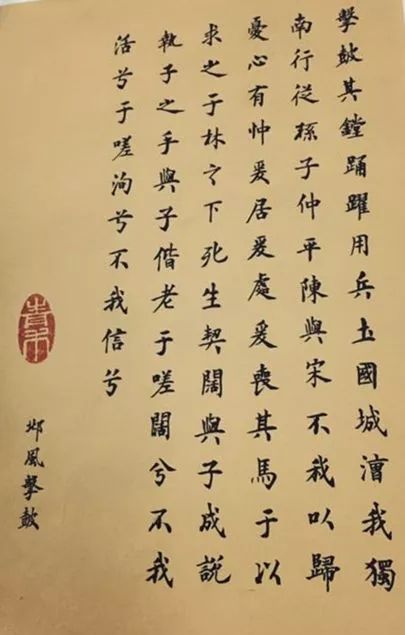 擊鼓其鏜踊躍用兵土國城漕我獨
南行從孫子仲平陳與宋不我以歸
憂心有忡爰居爰處爰喪其馬于以
求之于林之下死生契闊與子成說
執子之手與子偕老于嗟闊兮不我
活兮于嗟洵兮不我信兮
邶風擊鼓